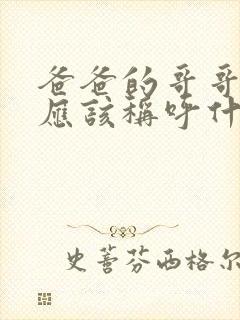 爸爸的哥哥
應該稱呼什
史蒈芬西格尔